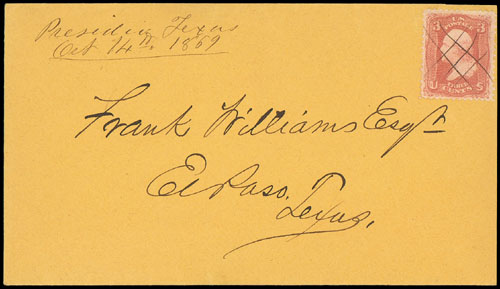 Presidio, Texas
Oct 14th 1869
3 U.S. POSTAGE 3
U THREE CENTS S
Frank Williams Esqr
El Paso,
Texas,